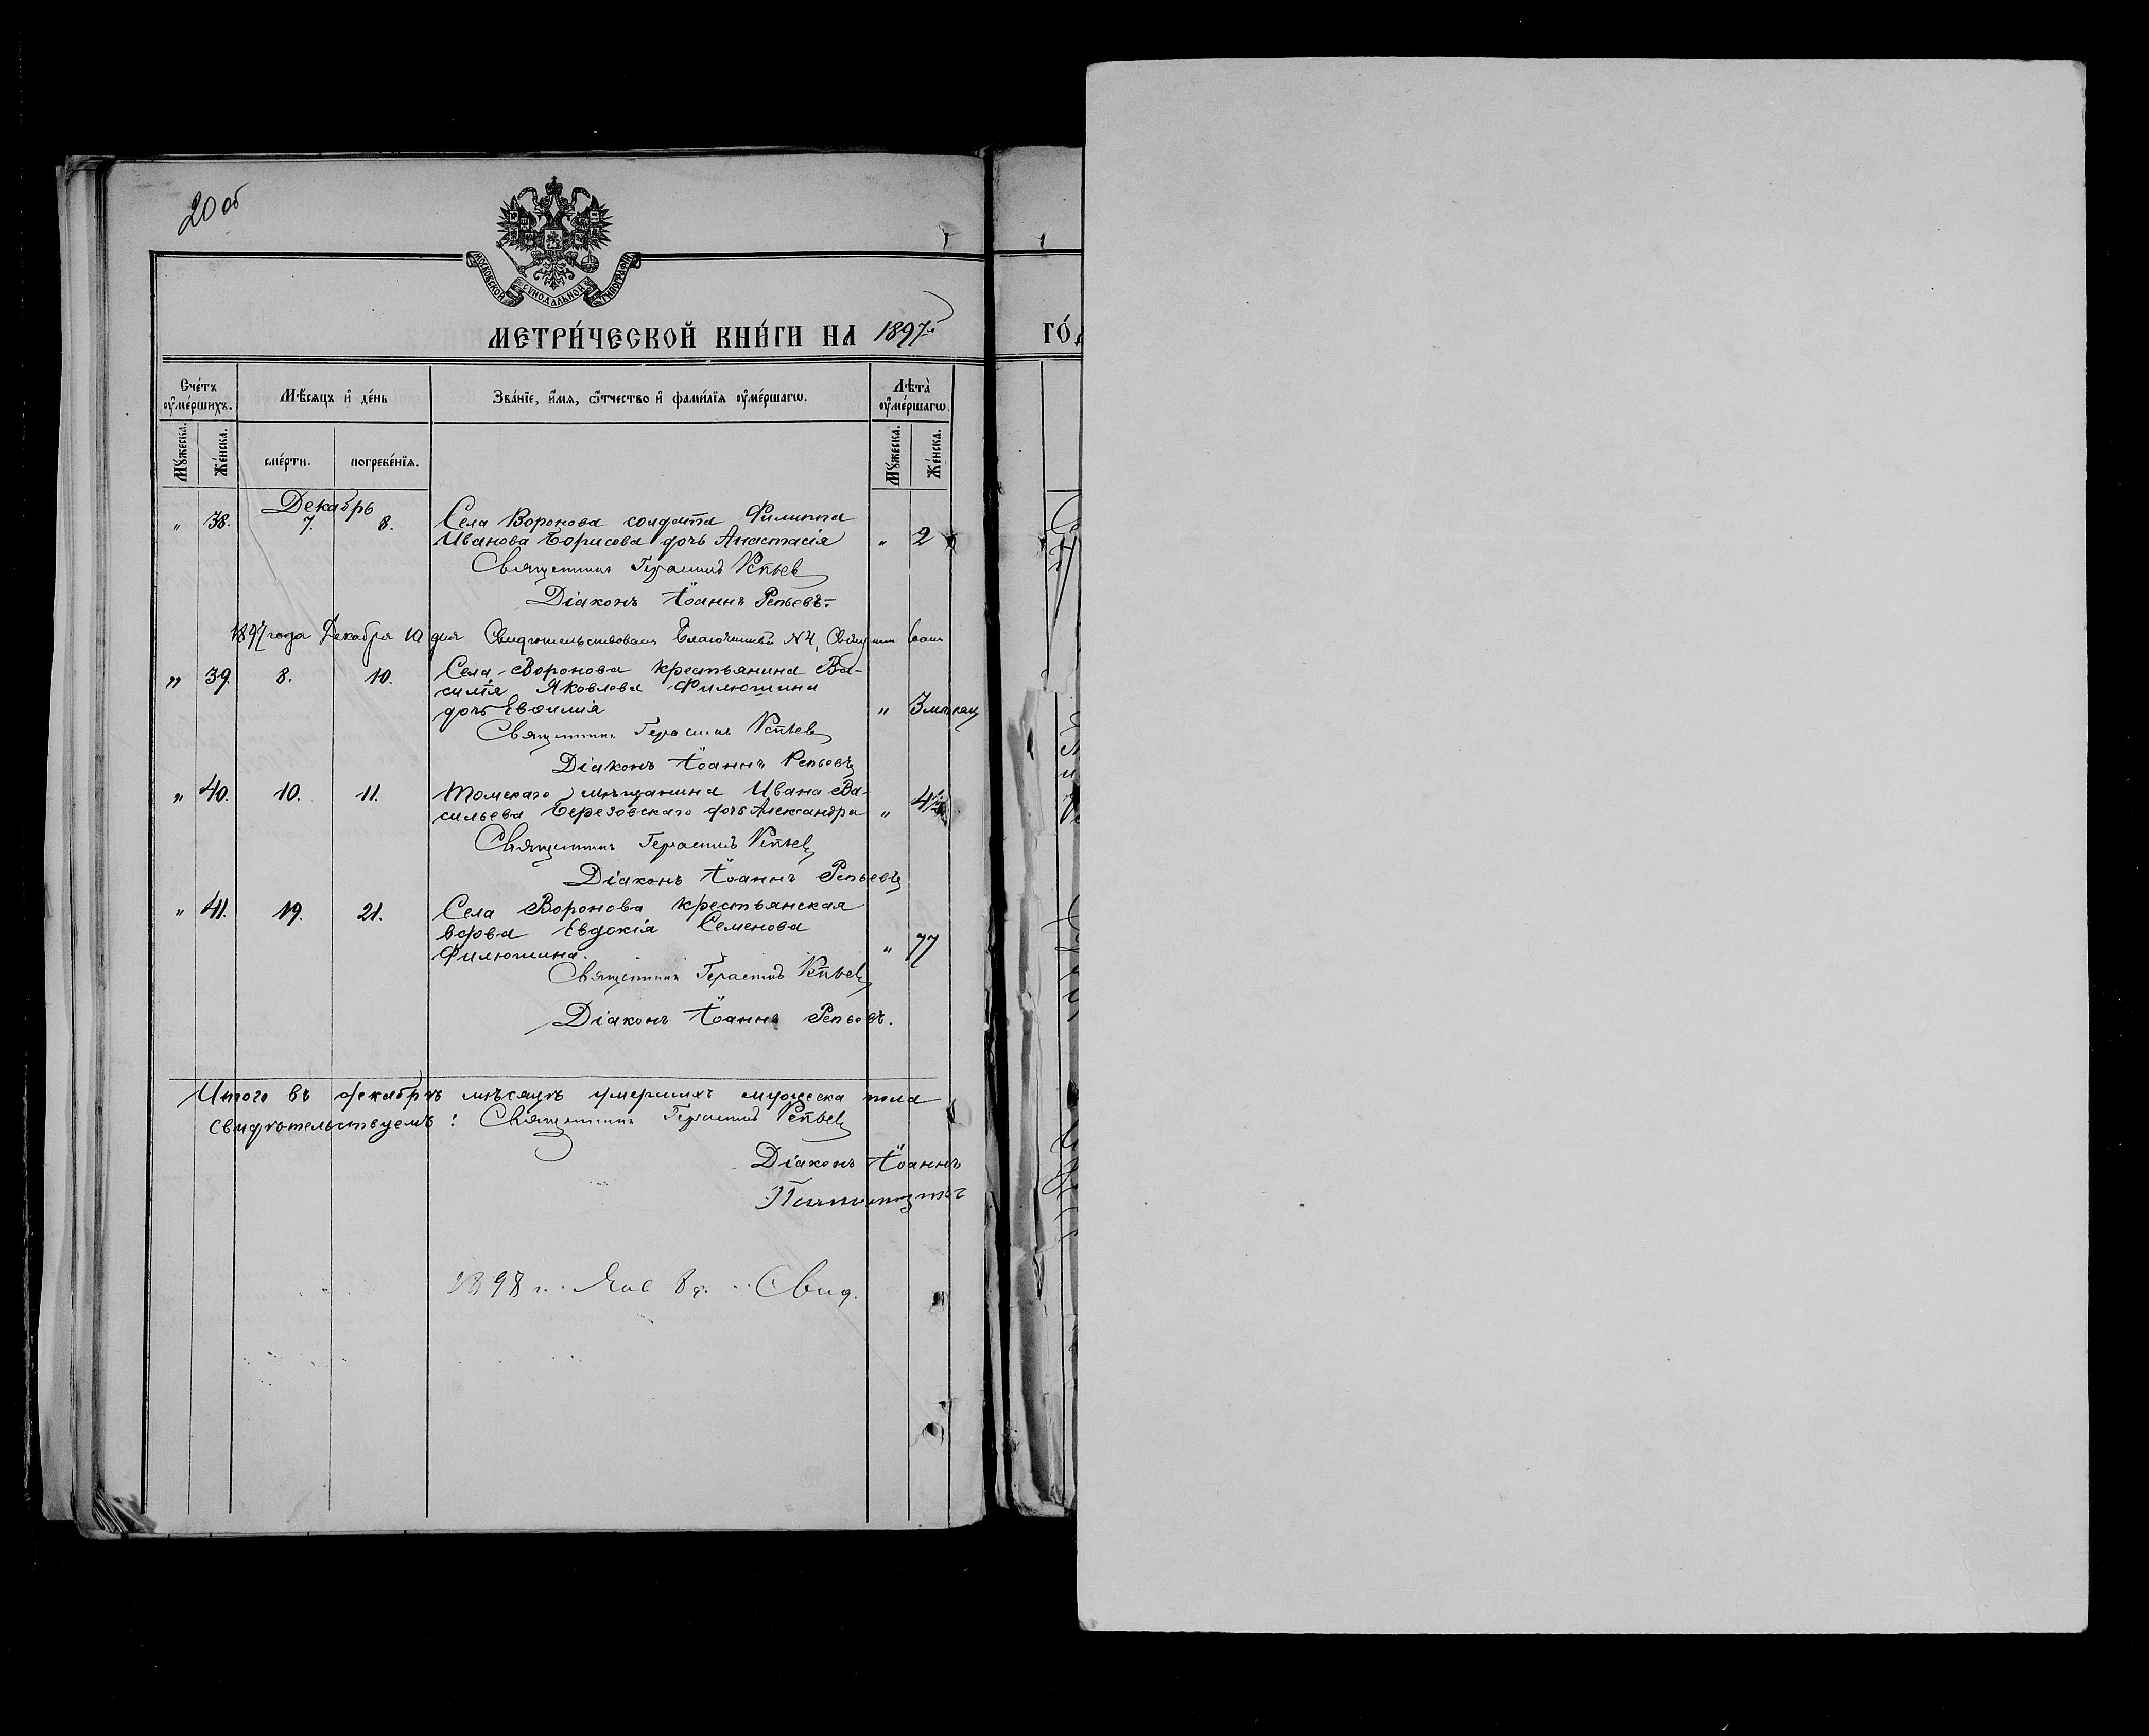 20 об
МОСКОВСКОЙ СѴНОДАЛЬНОЙ ТИПОГРАФІИ
МЕТРИ́ЧЕСКОЙ КНИ́ГИ НА 1897й
ГО́Д
Сче́тъ оуме́ршихъ.
Мѣ́сяцъ и де́нь
Зва́нїе, и́мя, ѻ́тчество и фами́лїя оуме́ршагѡ.
Лѣта̀ оуме́ршагѡ.
Му́жеска.
Же́нска.
сме́рти.
погребе́нїя.
Му́жеска.
Же́нска.
Декабрь
" 38. 7. 8. Села Воронова солдата Филиппа
Иванова Борисова дочь Анастасія " 2
Священникъ Герасимъ Репьев
Діаконъ Іоаннъ Репьевъ.
1897 года Декабря 10 дня Свидѣтельствовалъ Благочинный N4, Священ
" 39. 8. 10. Села Воронова крестьянина Ва-
силія Яковлева Филюшина
дочь Евѳимія " 3 мѣсяц
Священникъ Герасимъ Репьев
Діаконъ Іоаннъ Репьевъ
" 40. 10. 11. Томскаго мѣщанина Ивана Ва-
сильева Березовскаго дочь Александра "
Священникъ Герасимъ Репьев
Діаконъ Іоаннъ Репьевъ
" 41. 19. 21. Села Воронова крестьянская
вдова Евдокія Семенова
Филюшина. " 77
Священникъ Герасимъ Репьев
Діаконъ Іоаннъ Репьевъ.
Итого въ декабрѣ мѣсяцѣ умершихъ мужеска пола
свидѣтельствуемъ: Священникъ Герасимъ Репьев
Діаконъ Іоаннъ
1898 г. Янв 8 д. Свид.